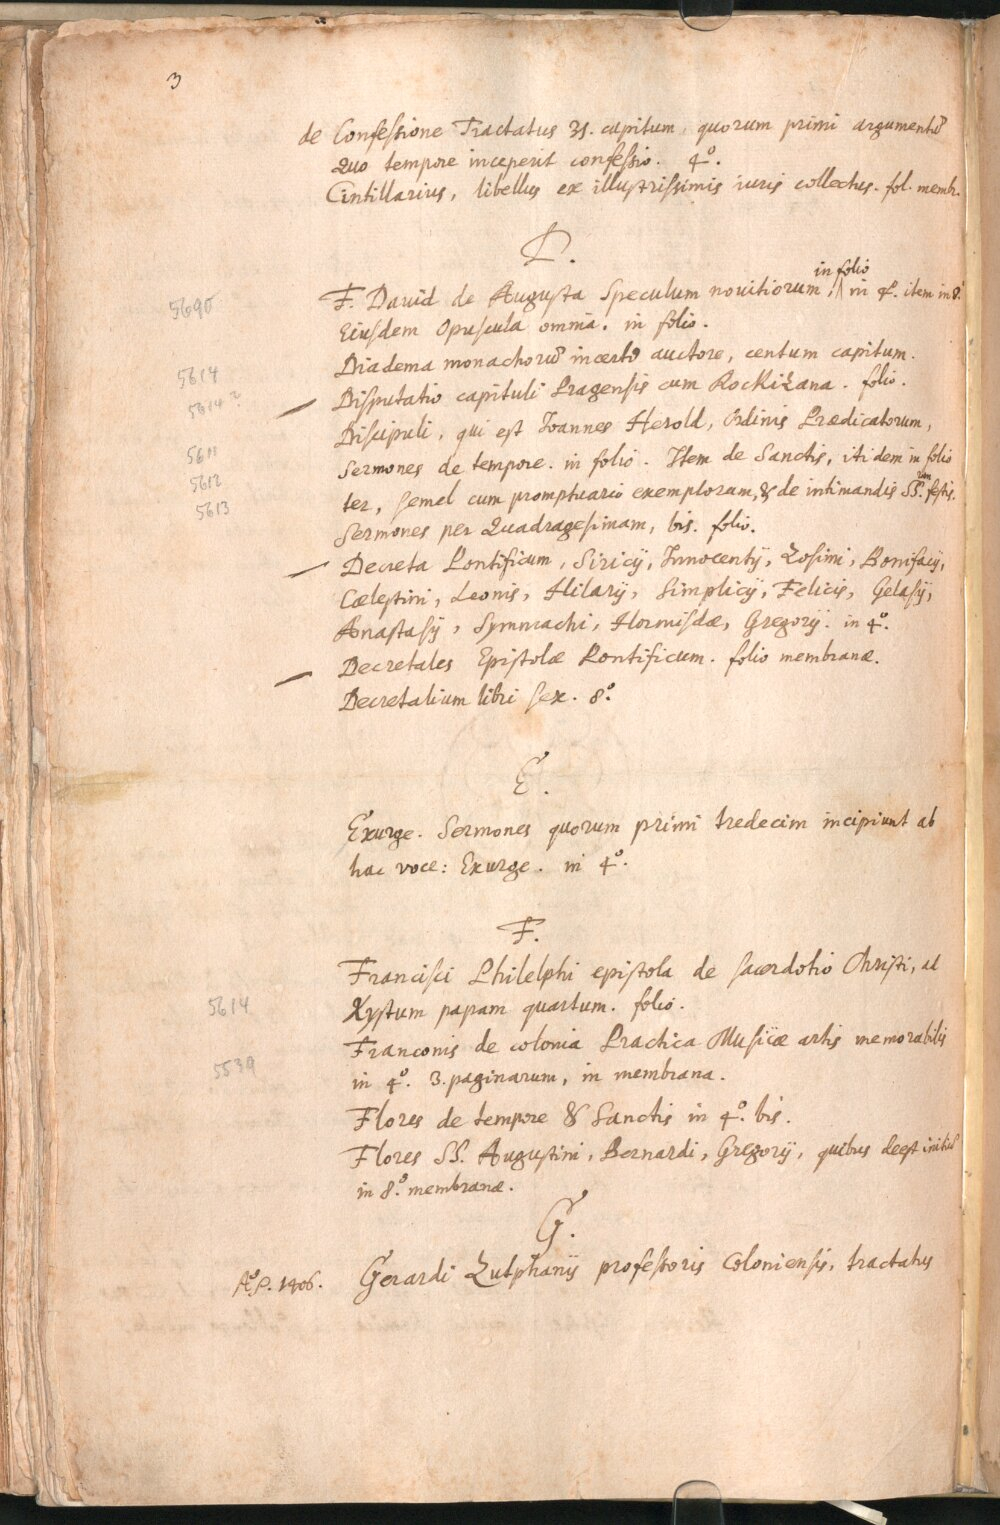 3
de Confessione Tractatus 31. capitum, quorum primi argumentũ
Quo tempore inceperit confessio. 4º.
Cintillarius, libellus ex illustrissimis iuris collectus. fol. membr.
D.
in folio
5695 F. Dauid de Augusta Speculum nouitiorum, ʌ in 4º. item in 8º
Eiusdem Opuscula omnia. in folio.
5614 Diadema monachorũ incerto auctore, centum capitum.
5614? Disputatio capituli Pragensis cum Rockizana. folio.
Discipuli, qui est Joannes Herold, Ordinis Prædicatorum,
5611 Sermones de tempore. in folio. Item de Sanctis, itidem in folio
5612 ter, semel cum promptuario exemplorum, & de intimandis SS.rum festis.
5613 Sermones per Quadragesimam, bis. folio.
Decreta Pontificum, Siricij, Innocentij, Zosimi, Bonifacij,
Cælestini, Leonis, Hilarij, Simplicij, Felicis, Gelasij,
Anastasij, Symmachi, Hormisdæ, Gregorij. in 4º.
Decretales Epistolæ Pontificum. folio membranæ.
Decretalium libri sex. 8º.
E.
Exurge. Sermones quorum primi tredecim incipiunt ab
hac voce: Exurge. in 4º.
F.
Francisci Philelphi epistola de sacerdotio Christi, ad
5614 Xystum papam quartum. folio.
Franconis de colonia Practica Musicæ artis memorabilis
5539 in 4º. 3. paginarum, in membrana.
Flores de tempore & Sanctis in 4º. bis.
Flores SS. Augustini, Bernardi, Gregorij, quibus deest initiũ
in 8º. membranæ.
G.
Aº. 1406. Gerardi Zutphanij professoris Coloniensis, tractatus